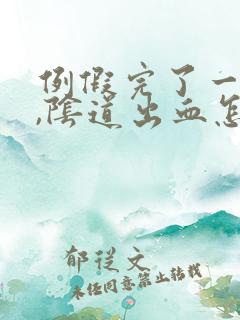 例假完了一
,陰道出血怎
郁従文
未经同意禁止转载